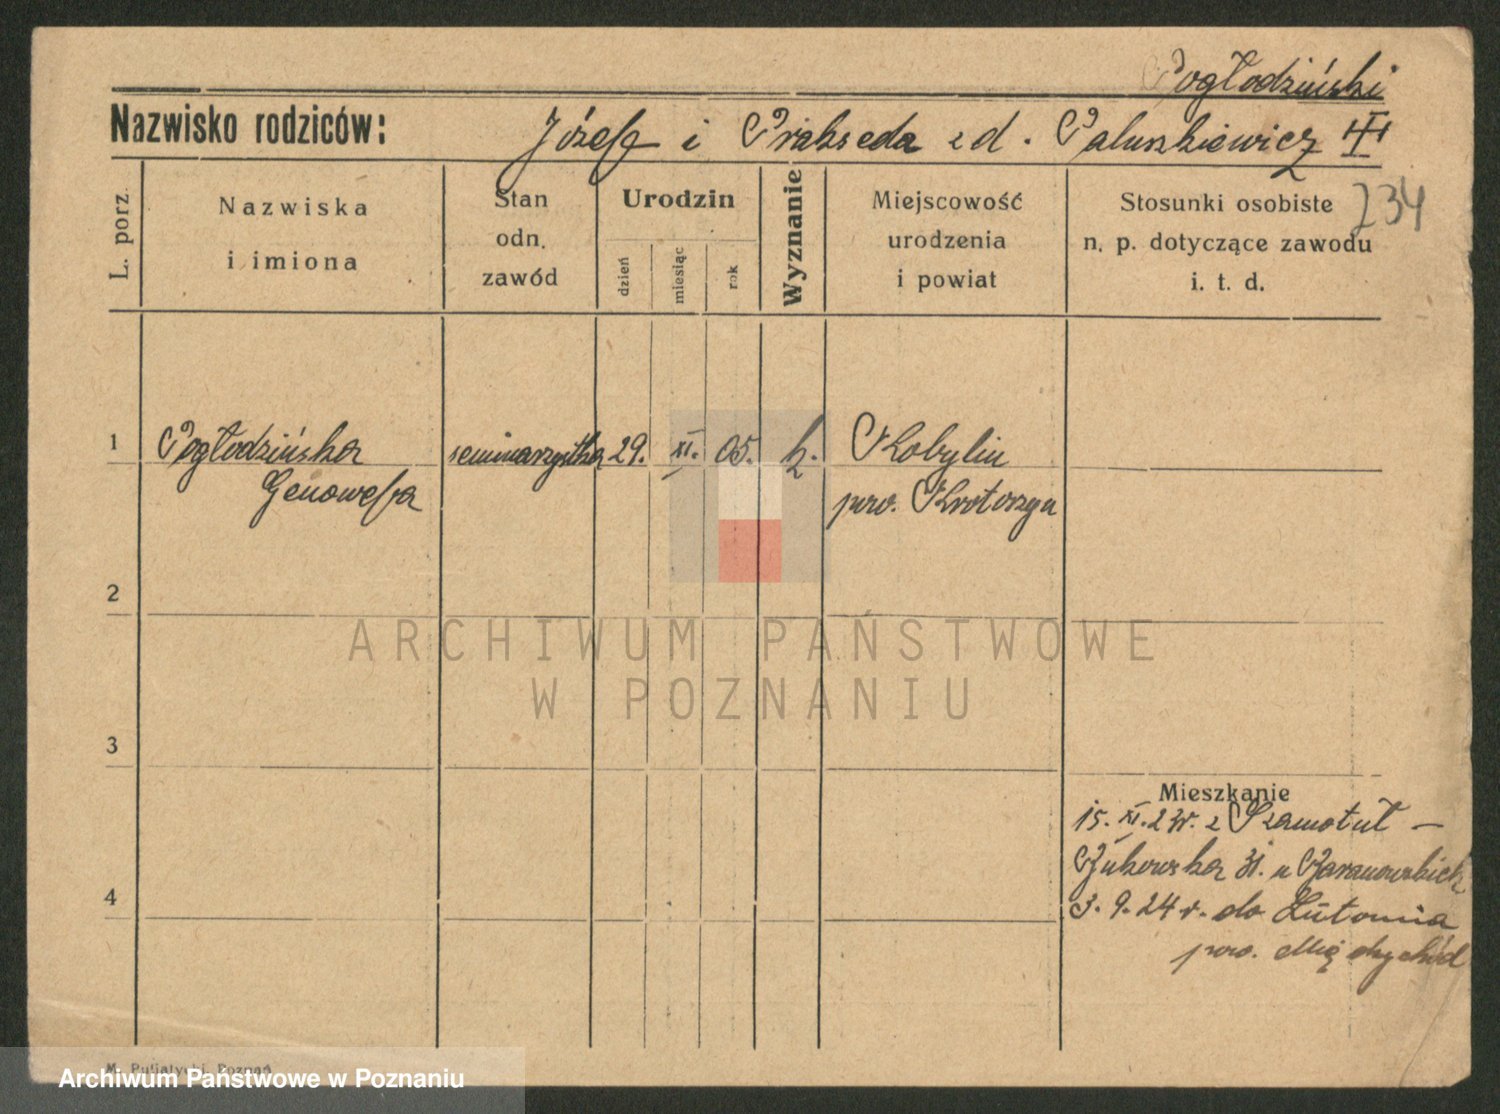 Pogłodziński
Nazwisko rodziców: Józef i Prakseda z d. Paluszkiewicz III
234
L. porz.
Nazwiska
i imiona
Stan
odn.
zawód
Urodzin
dzień
miesiąc
rok
Wyznanie
Miejscowość
urodzenia
i powiat
Stosunki osobiste
n. p. dotyczące zawodu
i. t. d.
1 Pogłodzińska seminarzystka 29. XI. 05. k. Kobylin
Genowefa pow. Krotoszyn
2
3
4
Mieszkanie
15. XI. 23r. z Szamotuł –
Żukowska 31. u Żaranowskich
3. 9. 24 r. do Lutomia
pow. Międzychód
ARCHIWUM PAŃSTWOWE
W POZNANIU
M. Putiatycki, Poznań
Archiwum Państwowe w Poznaniu